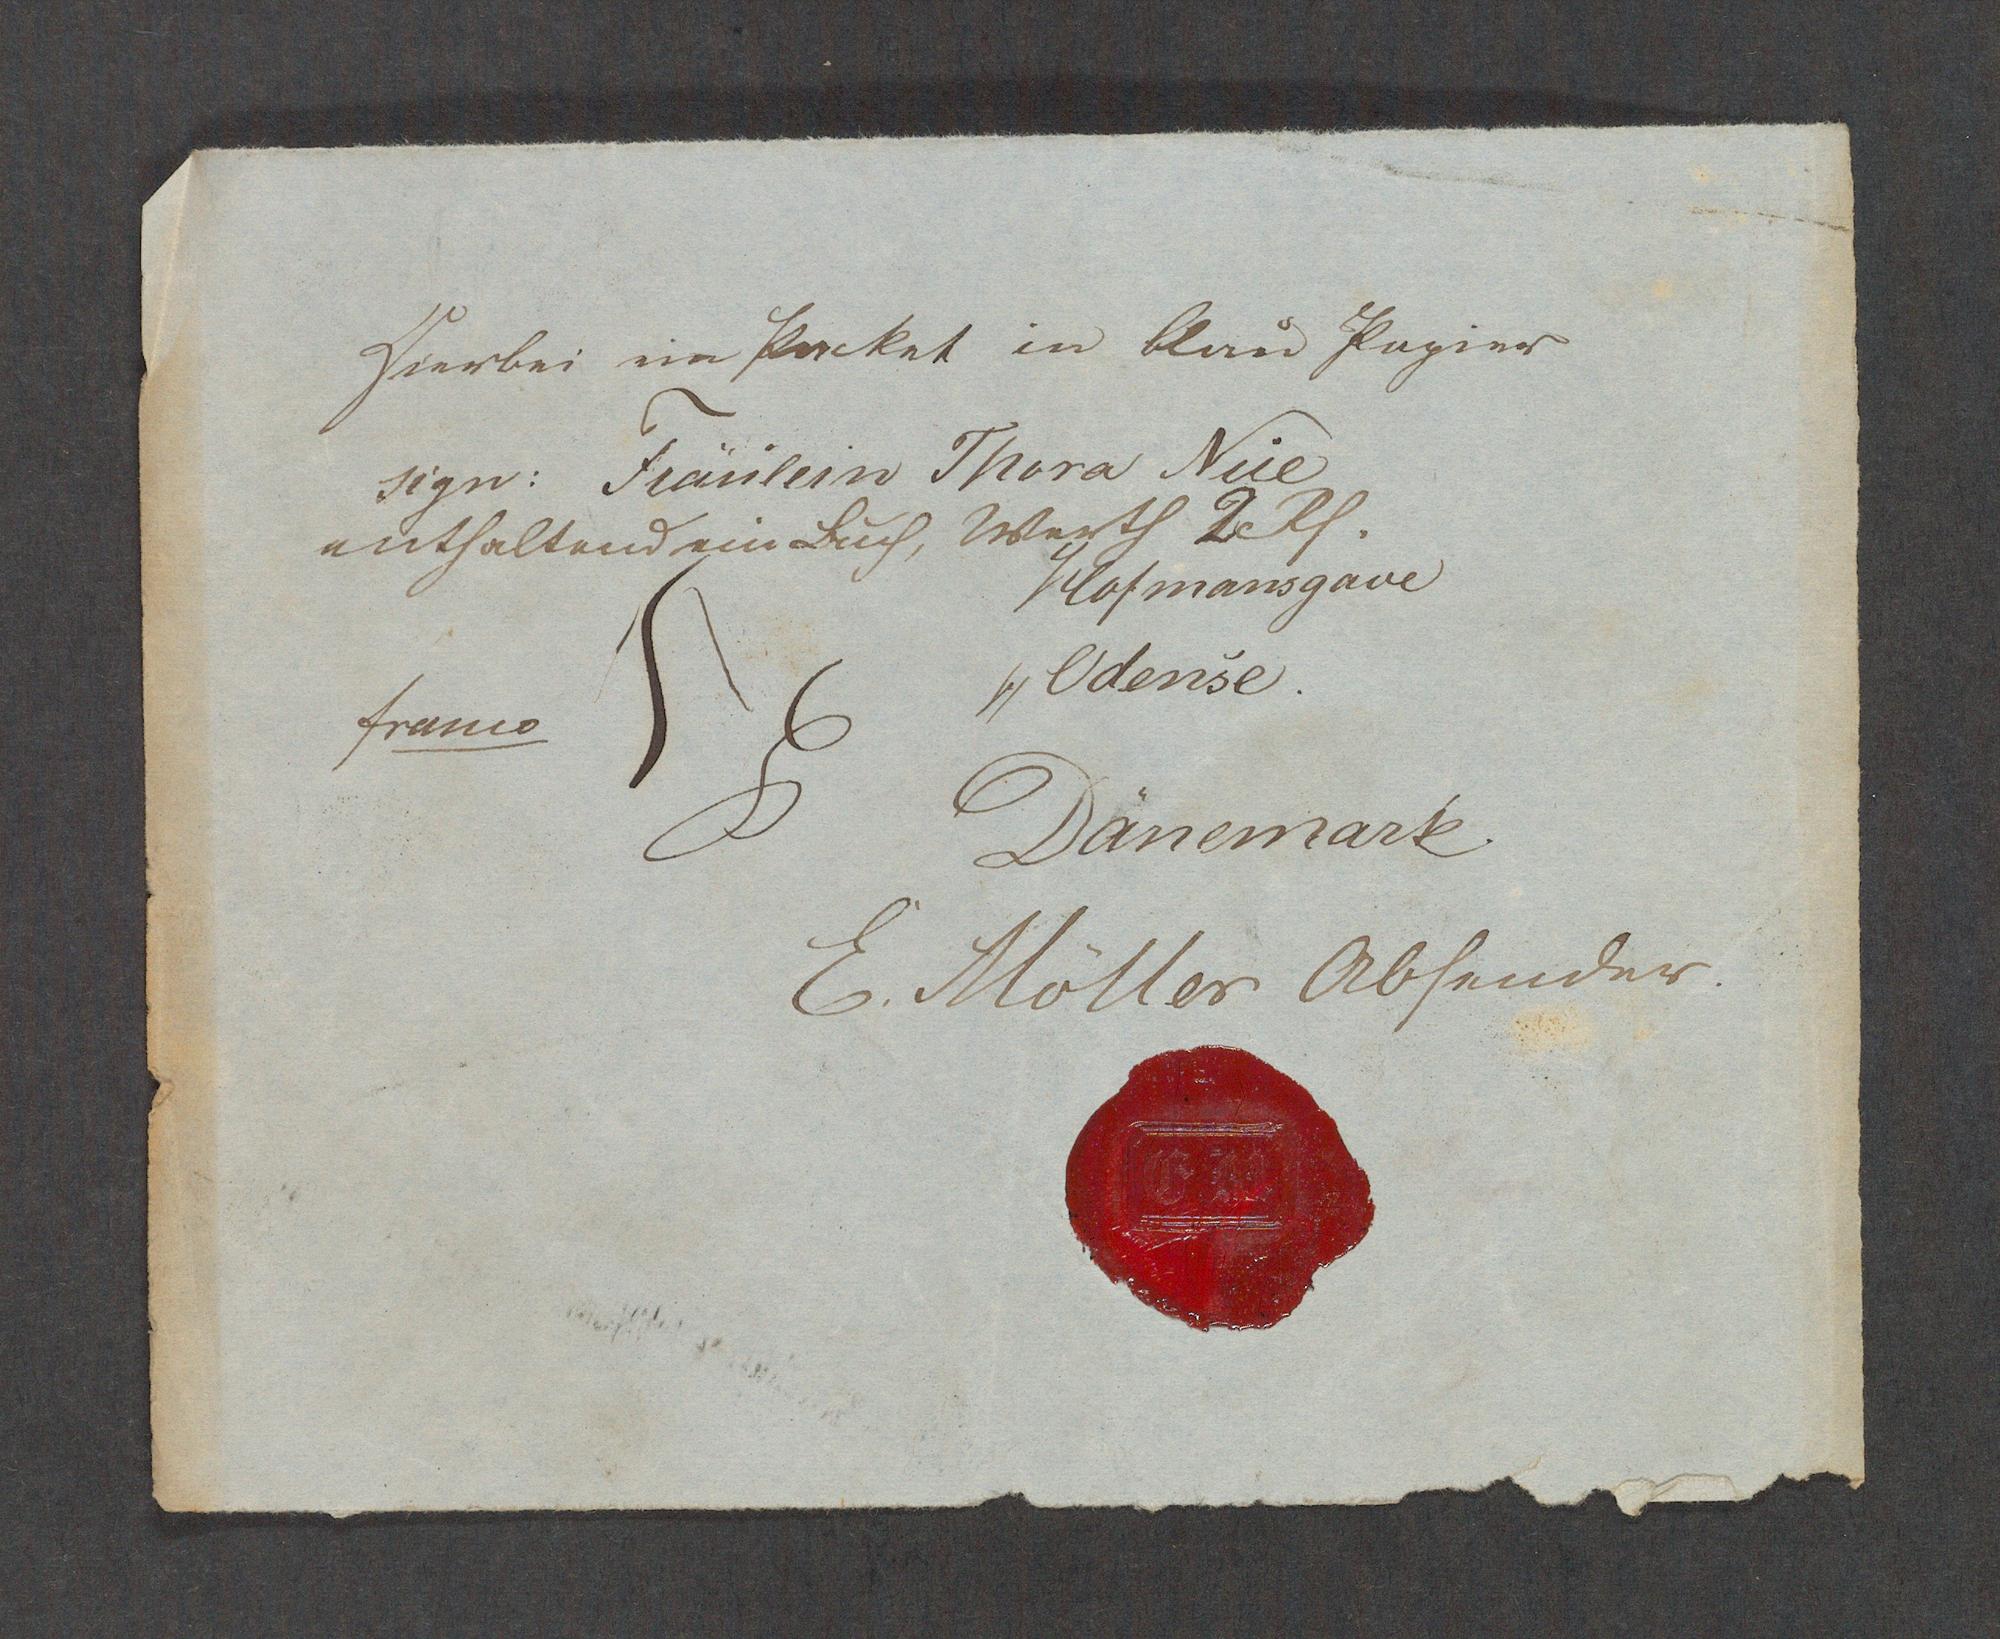 Hierbei ein Packet in blau Papier
sign: Fräulein Thora Nüe
enthaltend ein Buch, Werth 2
Hofmansgave
Odense.
franco
Dänemark.
E. Möller Absender.
E. M.